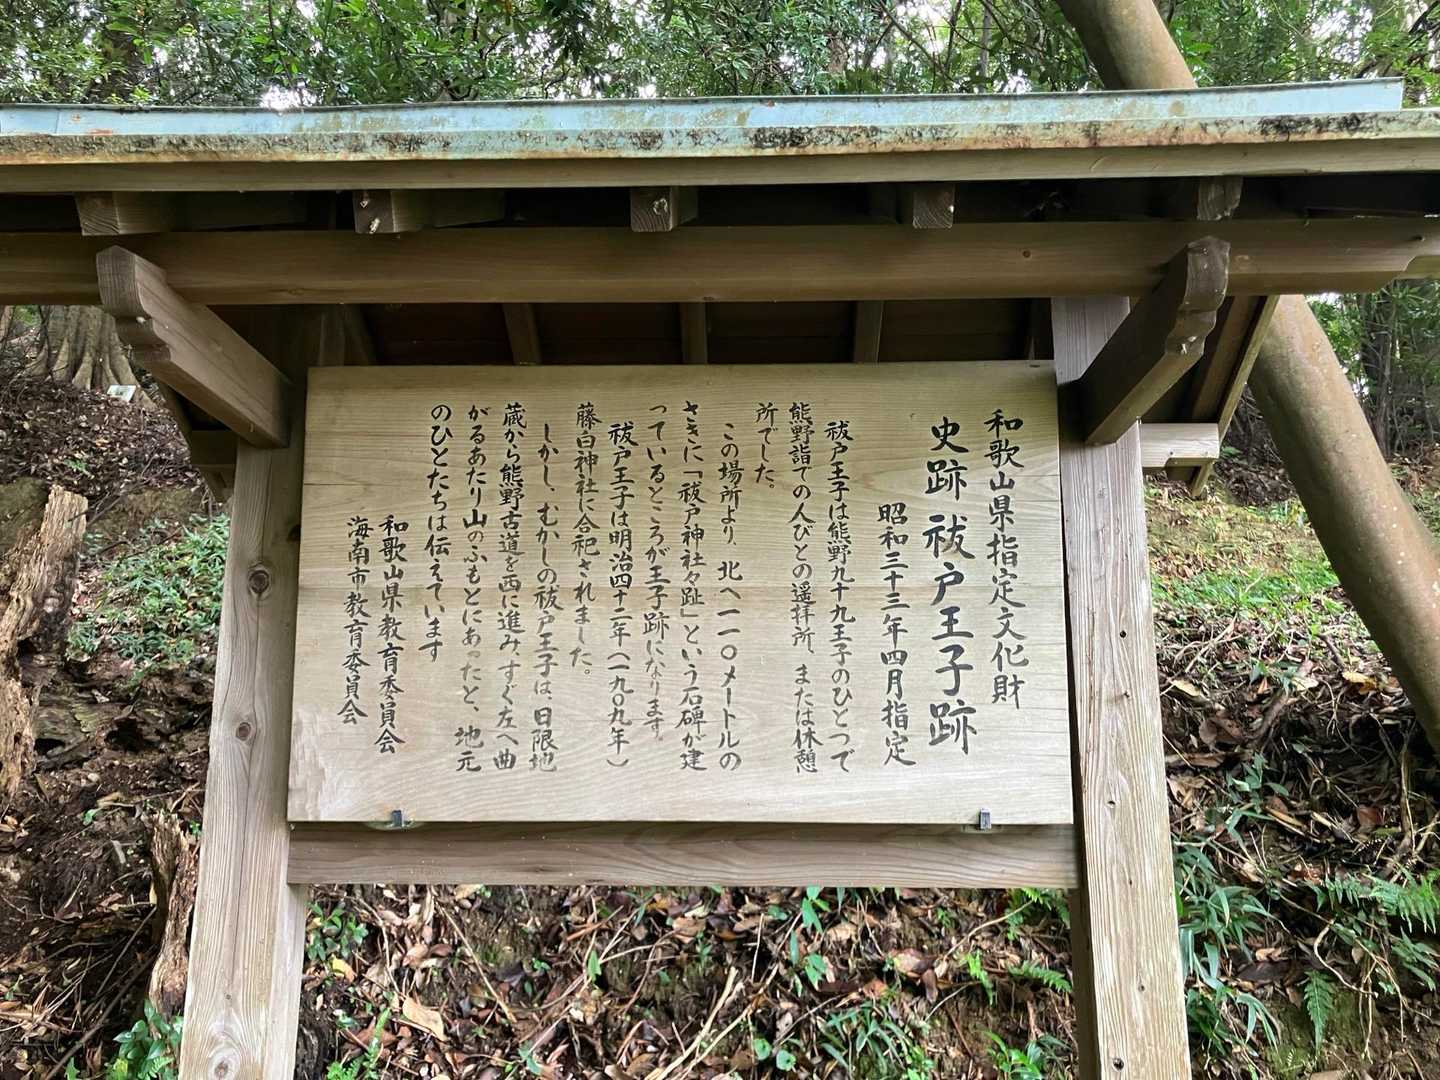 和歌山県指定文化財
史跡 祓戸王子跡
昭和三十三年四月指定
祓戸王子は熊野九十九王子のひとつで
熊野詣での人びとの遥拝所、または休憩
所でした。
この場所より、北へ一一〇メートルの
さきに「祓戸神社々趾」という石碑が建
っているところが王子跡になります。
祓戸王子は明治四十二年(一九〇九年)
藤白神社に合祀されました。
しかし、むかしの祓戸王子は、日限地
蔵から熊野古道を西に進み、すぐ左へ曲
がるあたり山のふもとにあったと、地元
のひとたちは伝えています
和歌山県教育委員会
海南市教育委員会